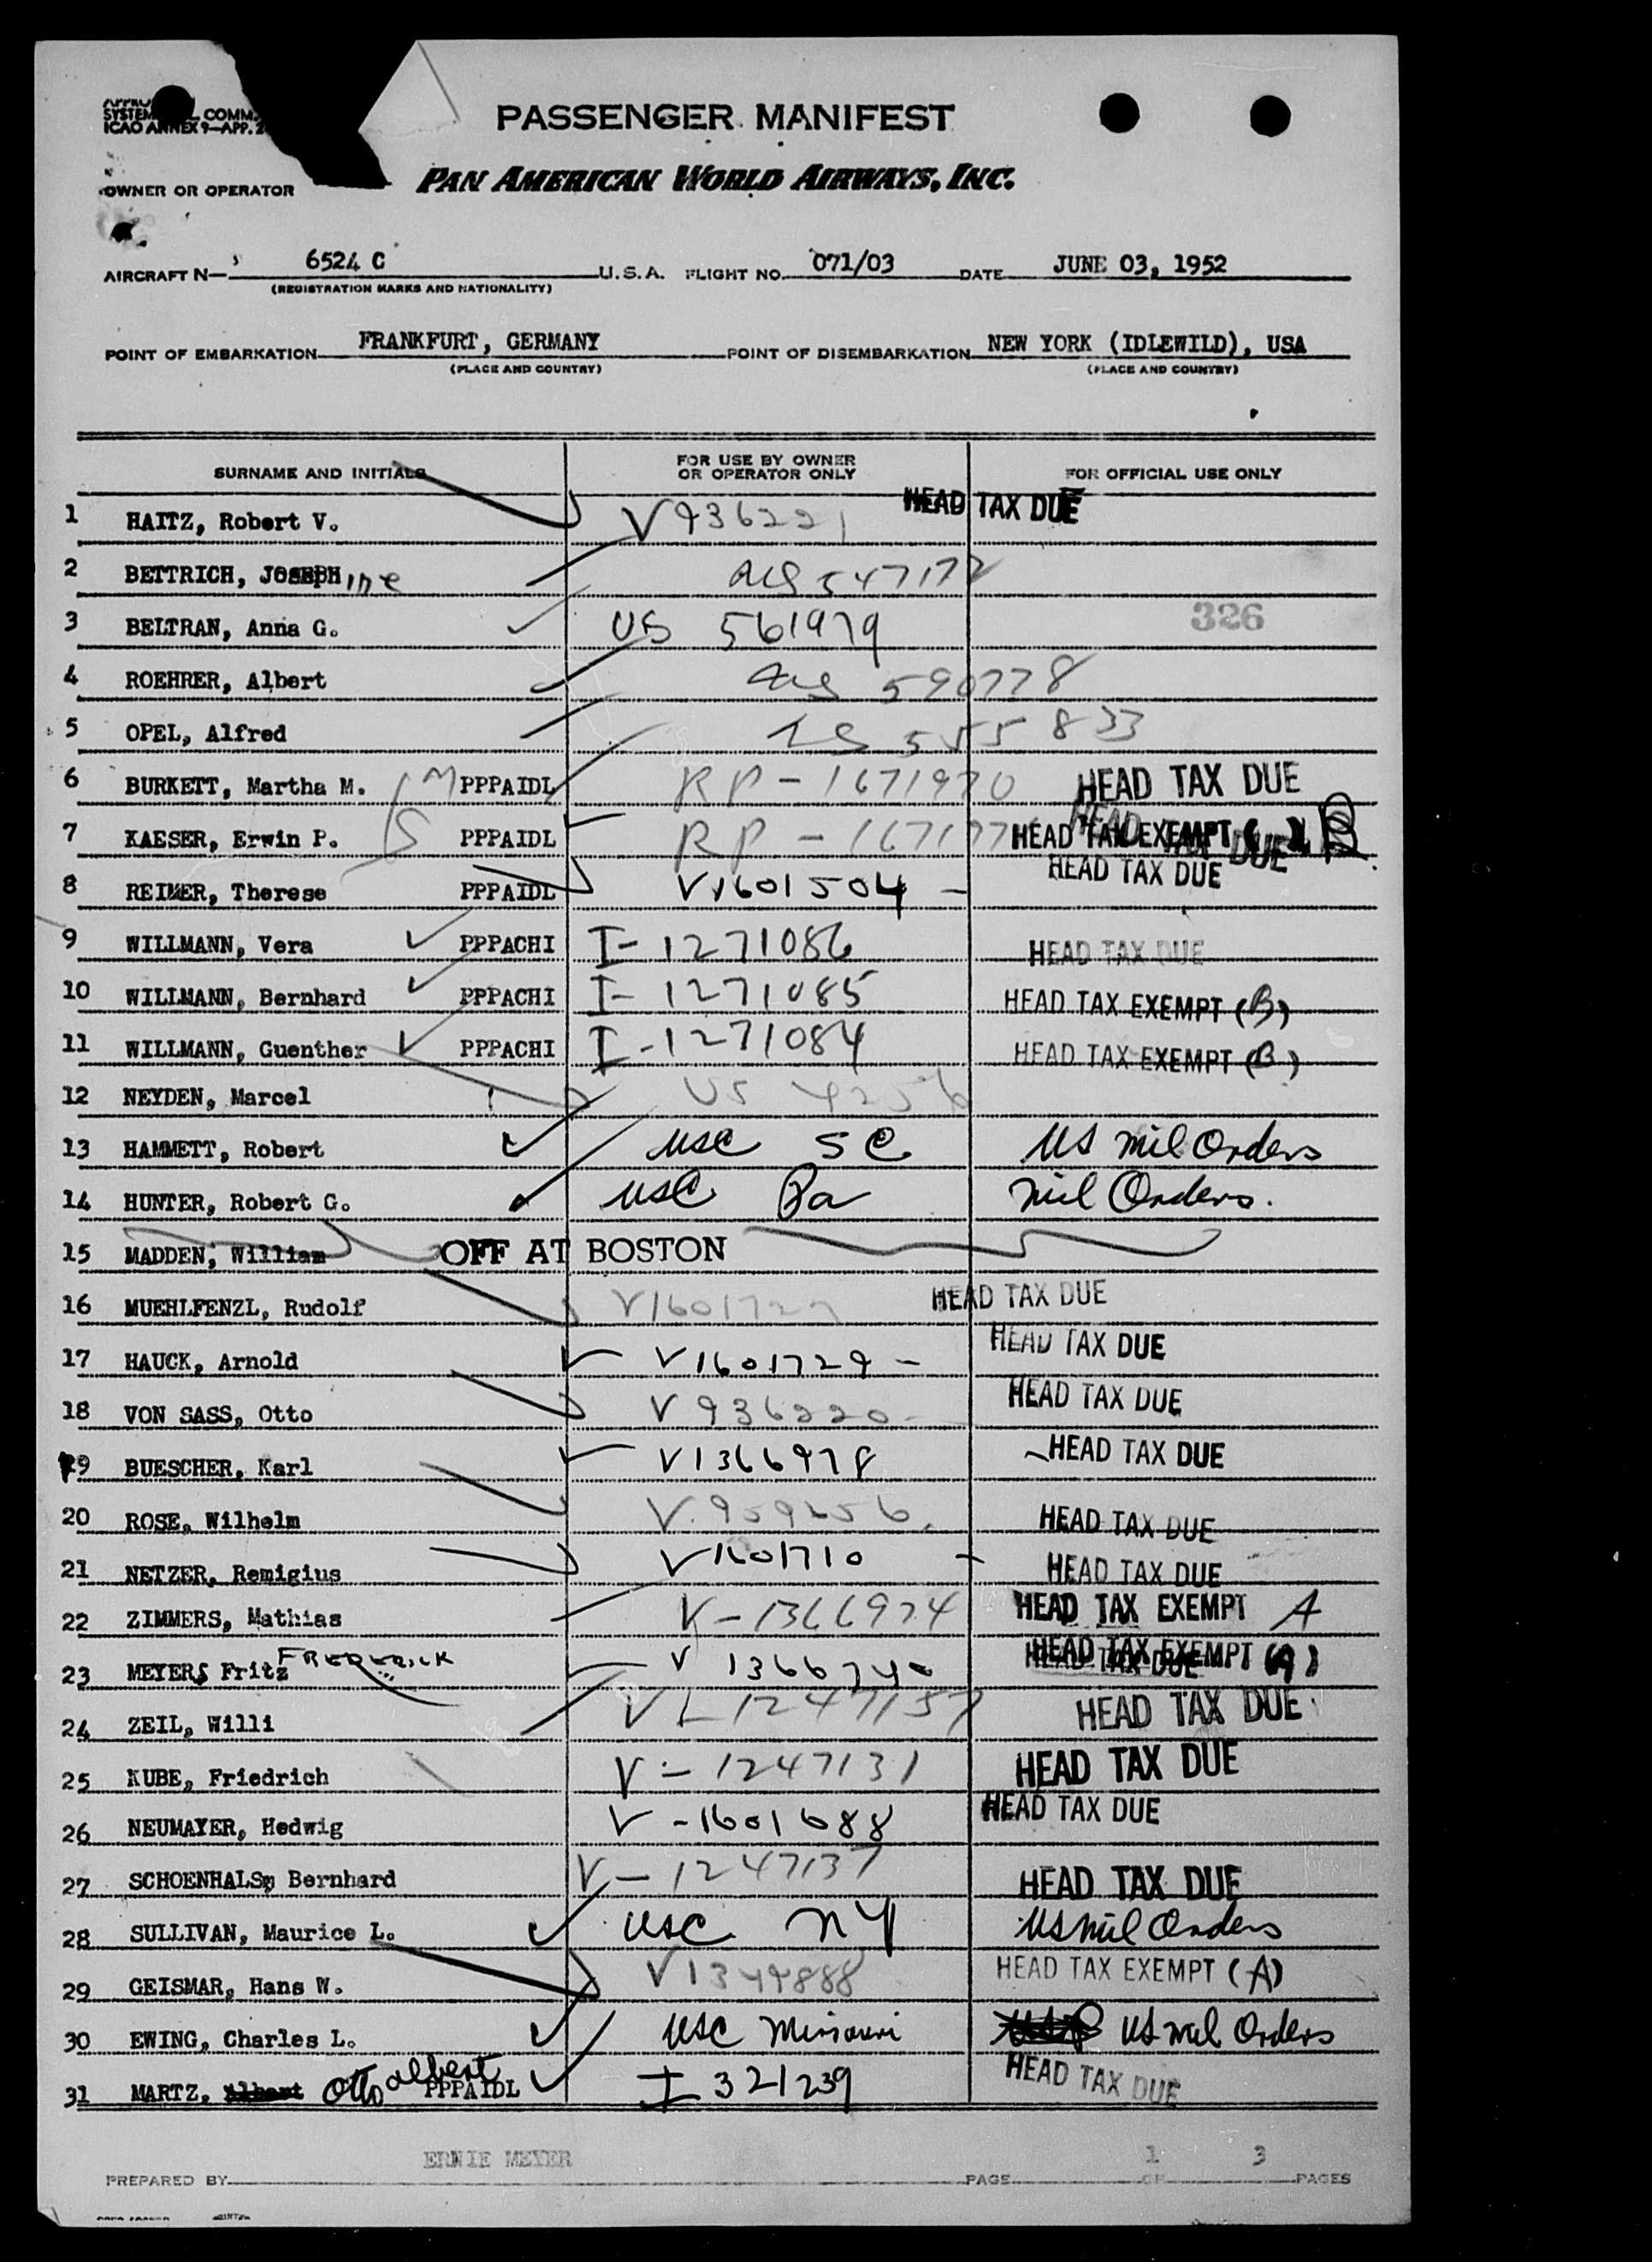 SYSTEM COMM.
ICAO ANNEX 9—APP. 2
PASSENGER MANIFEST
OWNER OR OPERATOR PAN AMERICAN WORLD AIRWAYS, INC.
AIRCRAFT N— 6524 C U.S.A. FLIGHT NO. 071/03 DATE JUNE 03, 1952
(REGISTRATION MARKS AND NATIONALITY)
POINT OF EMBARKATION FRANKFURT, GERMANY POINT OF DISEMBARKATION NEW YORK (IDLEWILD), USA
(PLACE AND COUNTRY) (PLACE AND COUNTRY)
SURNAME AND INITIALS FOR USE BY OWNER OR OPERATOR ONLY FOR OFFICIAL USE ONLY
1 HAITZ, Robert V. V936221 HEAD TAX DUE
2 BETTRICH, JOSEPHine 547172
3 BELTRAN, Anna G. US 561979 326
4 ROEHRER, Albert 590778
5 OPEL, Alfred 555833
6 BURKETT, Martha M. M PPPAIDL RP-1671970 HEAD TAX DUE
7 KAESER, Erwin P. S PPPAIDL RP-167197 HEAD TAX EXEMPT ( ) B HEAD TAX DUE
8 REIMER, Therese PPPAIDL V1601504 - HEAD TAX DUE
9 WILLMANN, Vera PPPACHI I-1271086 HEAD TAX DUE
10 WILLMANN, Bernhard PPPACHI I-1271085 HEAD TAX EXEMPT (B)
11 WILLMANN, Guenther PPPACHI I-1271084 HEAD TAX EXEMPT (B)
12 NEYDEN, Marcel US 4256
13 HAMMETT, Robert USC SC US mil Orders
14 HUNTER, Robert G. USC Pa mil Orders.
15 MADDEN, William OFF AT BOSTON
16 MUEHLFENZL, Rudolf V1601727 HEAD TAX DUE
17 HAUCK, Arnold V1601729 - HEAD TAX DUE
18 VON SASS, Otto V936220 - HEAD TAX DUE
19 BUESCHER, Karl V1366978 HEAD TAX DUE
20 ROSE, Wilhelm V.959256. HEAD TAX DUE
21 NETZER, Remigius V1601710 - HEAD TAX DUE
22 ZIMMERS, Mathias V-1366974 HEAD TAX EXEMPT A
23 MEYERS Fritz FREDERICK V 1366740 HEAD TAX EXEMPT (A) HEAD TAX DUE
24 ZEIL, Willi V-1247157 HEAD TAX DUE
25 KUBE, Friedrich V-1247131 HEAD TAX DUE
26 NEUMAYER, Hedwig V-1601688 HEAD TAX DUE
27 SCHOENHALS, Bernhard V-1247137 HEAD TAX DUE
28 SULLIVAN, Maurice L. USC NY US mil Orders
29 GEISMAR, Hans W. V1349888 HEAD TAX EXEMPT (A)
30 EWING, Charles L. USC Missouri US mil Orders
31 MARTZ, Albert Otto albert PPPAIDL I 321239 HEAD TAX DUE
PREPARED BY ERNIE MEYER PAGE 1 OF 3 PAGES